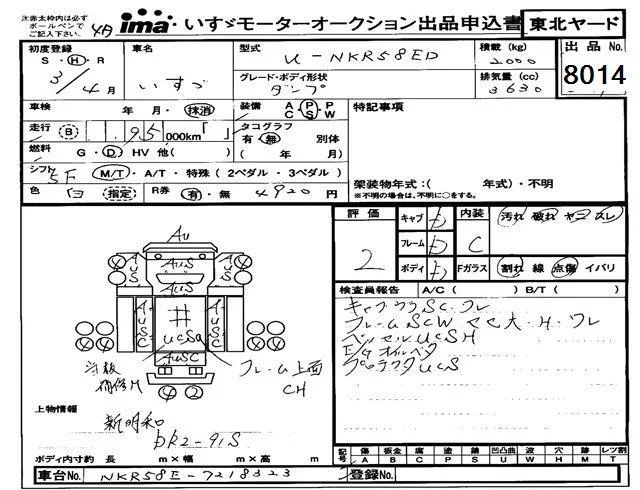 ※赤太枠内は必ず
ボールペンで
ご記入下さい。
4月
ima いすゞモーターオークション出品申込書 東北ヤード
初度登録
S・H・R
3/4月
車名
いすゞ
型式
U-NKR58ED
積載(kg)
2000
出品No.
8014
グレード・ボディ形状
ダンプ
排気量(cc)
3630
車検
年 月・抹消
装備
A P P
C S W
特記事項
走行 B 195 000km「 」
タコグラフ
有・無 別体
( 年 月)
燃料
G・D・HV 他( )
シフト
5F M/T・A/T・特殊(2ペダル・3ペダル)
色 白 指定
R券 有・無 4920 円
架装物年式:( 年式)・不明
※不明の場合は、不明に○をする。
評価
2
キャブ D
フレーム D
ボディ D
内装
C
汚れ 破れ ヤニ スレ
Fガラス
割れ 線 点傷 イバリ
検査員報告 A/C( ) B/T( )
キャブ SC・
フレームSCW 大・H・
ベッセルUCSH
E/gオイル
UCS
Au
AUS
AUS
AUSC
AUSC
#
UCSa
AUSC
補修H
フレーム上面
CH
上物情報
新明和
DR2-91S
ボディ内寸約 長 m×幅 m×高 m
記号 傷 板金 腐 塗 錆 凹凸曲 波 穴 跡 レツ割
A B C P S U W H M T
車台No. NKR58E-7218323
登録No.